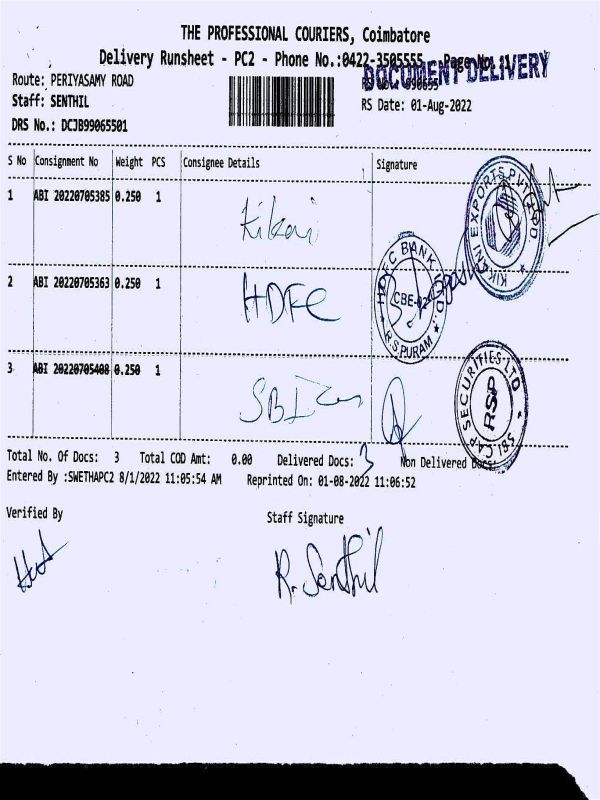 THE PROFESSIONAL COURIERS, Coimbatore
Delivery Runsheet - PC2 - Phone No.:0422-3505555 - Page No. 1
DOCUMENT DELIVERY
Route: PERIYASAMY ROAD
Staff: SENTHIL
RS Date: 01-Aug-2022
DRS No.: DCJB99065501
S No Consignment No Weight PCS Consignee Details Signature
1 ABI 20220705385 0.250 1
KIKANI EXPORTS PVT LTD
2 ABI 20220705363 0.250 1 HDFC
HDFC BANK LTD.
R.S.PURAM
3 ABI 20220705408 0.250 1 SBI
SBI CAP SECURITIES LTD
RSP
Total No. Of Docs: 3 Total COD Amt: 0.00 Delivered Docs: 3 Non Delivered Docs:
Entered By :SWETHAPC2 8/1/2022 11:05:54 AM Reprinted On: 01-08-2022 11:06:52
Verified By Staff Signature
R. Senthil